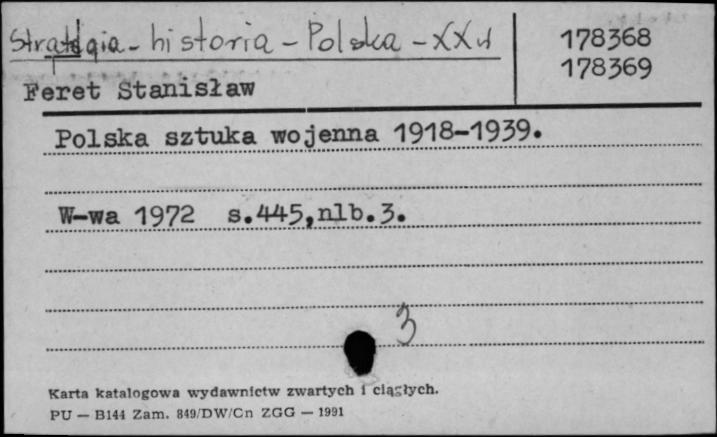 Strategia - historia - Polska - XX w
178368
178369
Feret Stanisław
Polska sztuka wojenna 1918-1939.
W-wa 1972 s.445,nlb.3.
3
Karta katalogowa wydawnictw zwartych i ciągłych.
PU — B144 Zam. 849/DW/Cn ZGG — 1991